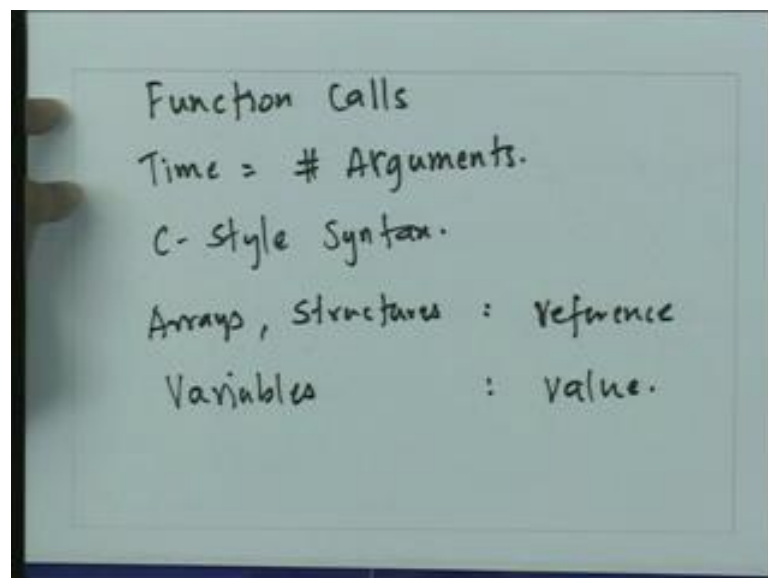 Function Calls
Time = # Arguments.
C-style Syntax.
Arrays, Structures : reference
Variables : value.